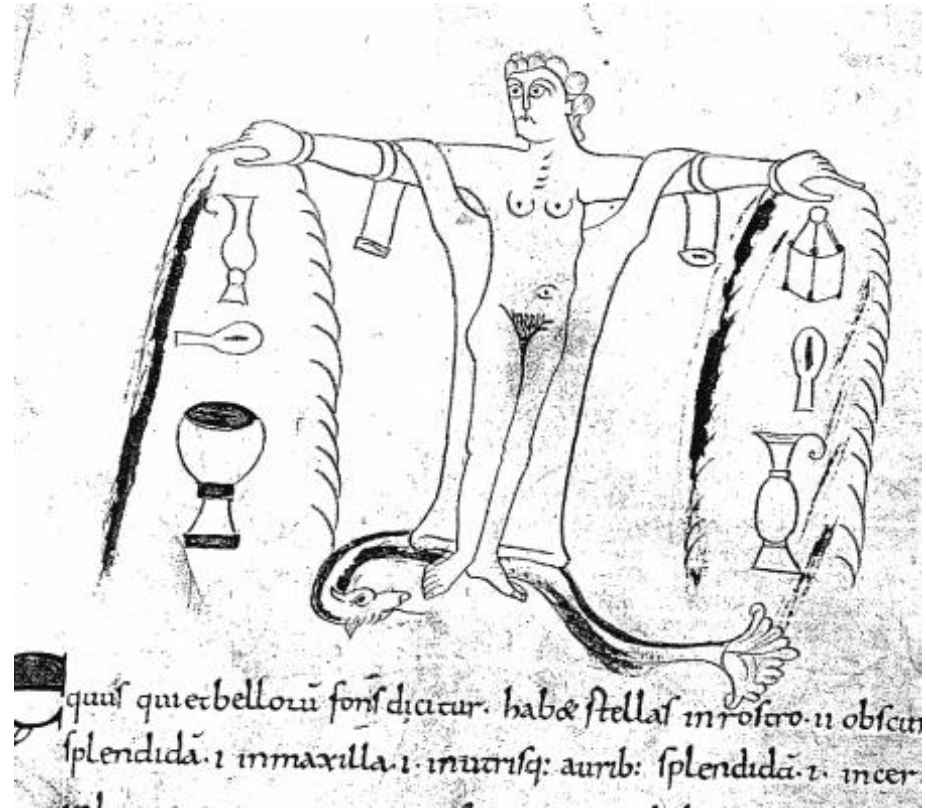 quus qui et bellorū fons dicitur. hab& stellas in rostro. II obscur
splendidā. I in maxilla. I. in utrisq: aurib: splendidā. I. in cer